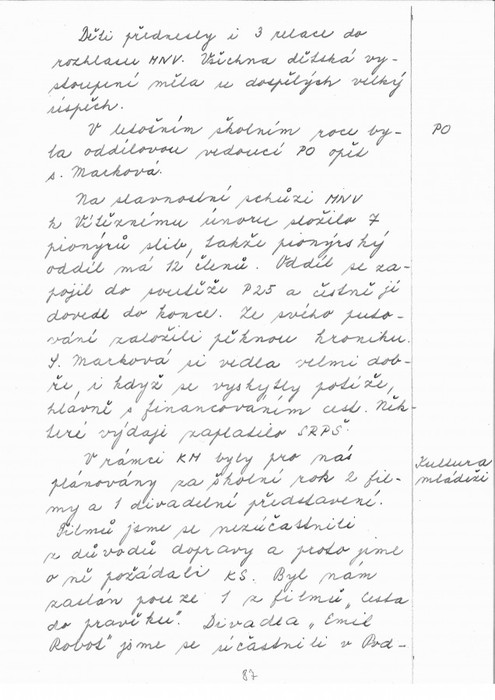 Děti přednesly i 3 relace do
rozhlasu MNV. Všichna dětská vy-
stoupení měla u dospělých velký
úspěch.
V letošním školním roce by-
la oddílovou vedoucí PO opět
s. Marková.
PO
Na slavnostní schůzi MNV
k Vítěznému únoru složilo 7
pionýrů slib, takže pionýrský
oddíl má 12 členů. Oddíl se za-
pojil do soutěže P25 a čestně ji
dovedl do konce. Ze svého puto-
vání založili pěknou kroniku.
S. Marková si vedla velmi dob-
ře, i když se vyskytly potíže,
hlavně s financováním cest. Něk-
teré výdaje zaplatilo SRPŠ.
V rámci KM byly pro nás
plánovány za školní rok 2 fil-
my a 1 divadelní představení.
Filmů jsme se nezúčastnili
z důvodů dopravy a proto jsme
o ně požádali KS. Byl nám
zaslán pouze 1 z filmů „Cesta
do pravěku“. Divadla „Emil
Robot“ jsme se súčastnili v Pod-
Kultura
mládeži
87